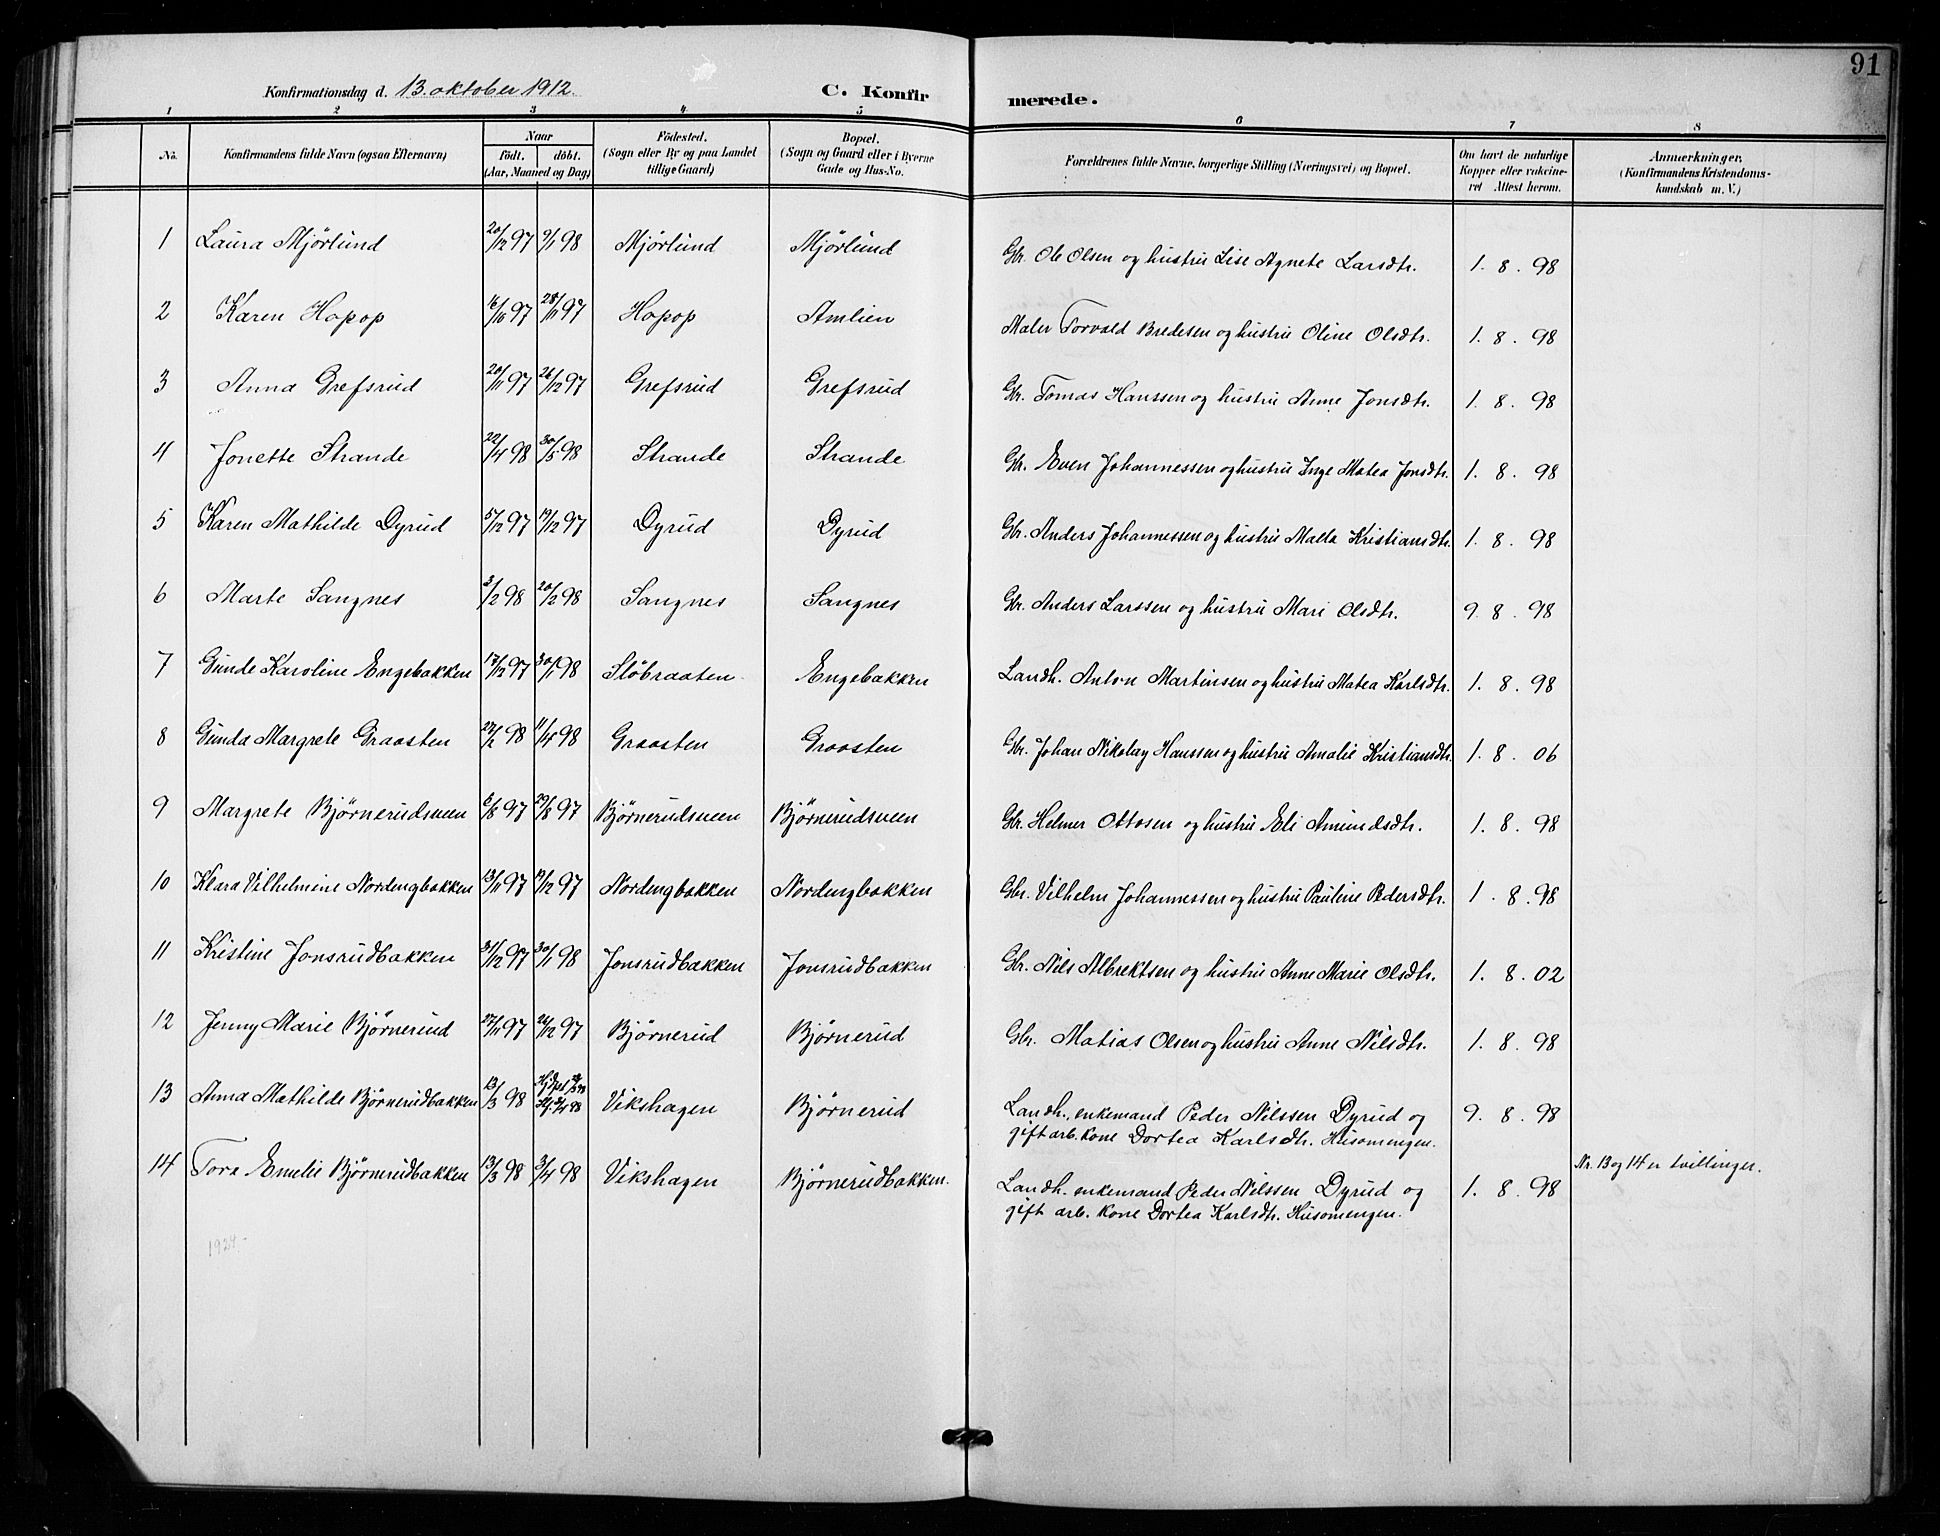 91
Konfirmationsdag d. 13. oktober 1912. C. Konfirmerede.
1 2 3 4 5 6 7 8
No. Konfirmandens fulde Navn (ogsaa Efternavn) Naar födt. döbt. (Aar, Maaned og Dag) Födested. (Sogn eller By og paa Landet tillige Gaard) Bopæl. (Sogn og Gaard eller i Byerne Gade og Hus-No. Forældrenes fulde Navne, borgerlige Stilling (Næringsvei) og Bopæl. Om havt de naturlige Kopper eller vakcineret Attest herom. Anmærkninger, (Konfirmandens Kristendomskundskab m. V.)
1 Laura Mjørlund 20/12 97 9/1 98 Mjørlund Mjørlund Gbr. Ole Olsen og hustru Lise Agnete Larsdtr. 1. 8. 98
2 Karen Hopop 16/10 97 28/11 97 Hopop Amlien Maler Torvald Bredesen og hustru Oline Olsdtr. 1. 8. 98
3 Anna Grefsrud 20/11 97 26/12 97 Grefsrud Grefsrud Gbr. Tomas Hanssen og hustru Anne Jonsdtr. 1. 8. 98
4 Jonette Strande 22/4 98 30/5 98 Strande Strande Gbr. Even Johannessen og hustru Inge Matea Jonsdtr. 1. 8. 98
5 Karen Mathilde Dyrud 5/12 97 19/12 97 Dyrud Dyrud Gbr. Anders Johannessen og hustru Matea Kristiansdtr. 1. 8. 98
6 Marte Sangnes 3/2 98 20/2 98 Sangnes Sangnes Gbr. Anders Larssen og hustru Mari Olsdtr. 9. 8. 98
7 Gunda Karoline Engebakken 17/12 97 30/1 98 Slöbraaten Engebakken Landh. Anton Martinsen og hustru Matea Karlsdtr. 1. 8. 98
8 Gunda Margrete Graasten 22/2 98 11/4 98 Graasten Graasten Gbr. Johan Nikolay Hanssen og hustru Amalie Kristiansdtr. 1. 8. 06
9 Margrete Bjørnerudsveen 6/8 97 29/8 97 Bjørnerudsveen Bjørnerudsveen Gbr. Helmer Ottosen og hustru Eli Amundsdtr. 1. 8. 98
10 Klara Vilhelmine Nordengbakken 13/11 97 19/12 97 Nordengbakken Nordengbakken Gbr. Vilhelm Johannessen og hustru Pauline Pedersdtr. 1. 8. 98
11 Kristine Jonsrudbakken 31/12 97 30/1 98 Jonsrudbakken Jonsrudbakken Gbr. Nils Albrektsen og hustru Anne Marie Olsdtr. 1. 8. 02
12 Jenny Marie Bjørnerud 27/11 97 26/12 97 Bjørnerud Bjørnerud Gbr. Matias Olsen og hustru Anne Nilsdtr. 1. 8. 98
13 Anna Mathilde Bjørnerudbakken 13/3 98 Vikshagen Bjørnerud Landh. enkemand Peder Nilssen Dyrud og 9. 8. 98
gift arb. kone Dortea Karlsdtr. Husomengen.
14 Tora Emelie Bjørnerudbakken 13/3 98 3/4 98 Vikshagen Bjørnerudbakken. Landh. enkemand Peder Nilssen Dyrud og 1. 8. 98 Nr. 13 og 14 er tvillinger.
gift arb. kone Dortea Karlsdtr. Husomengen.
1924.